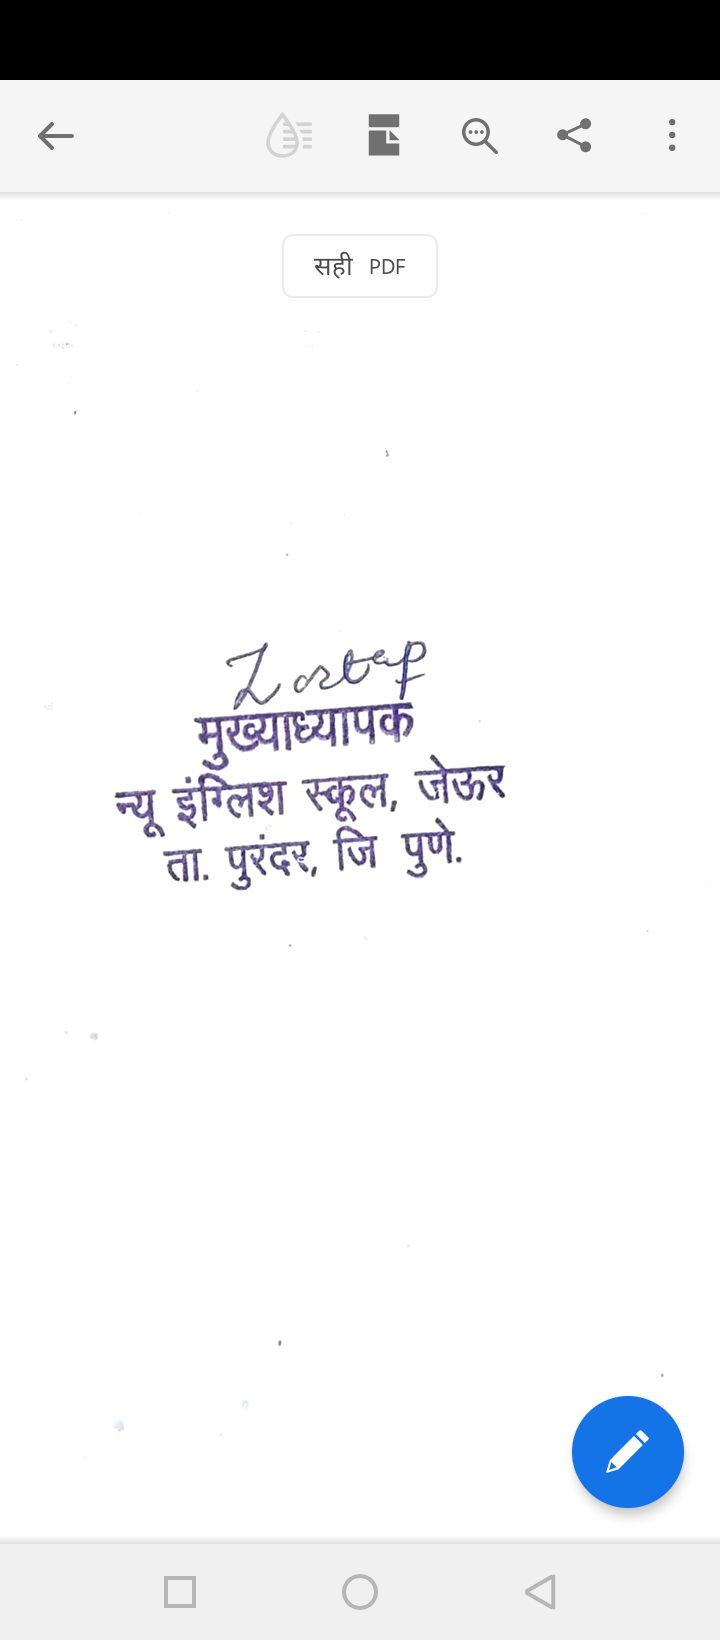 सही PDF
मुख्याध्यापक
न्यू इंग्लिश स्कूल, जेऊर
ता. पुरंदर, जि पुणे.